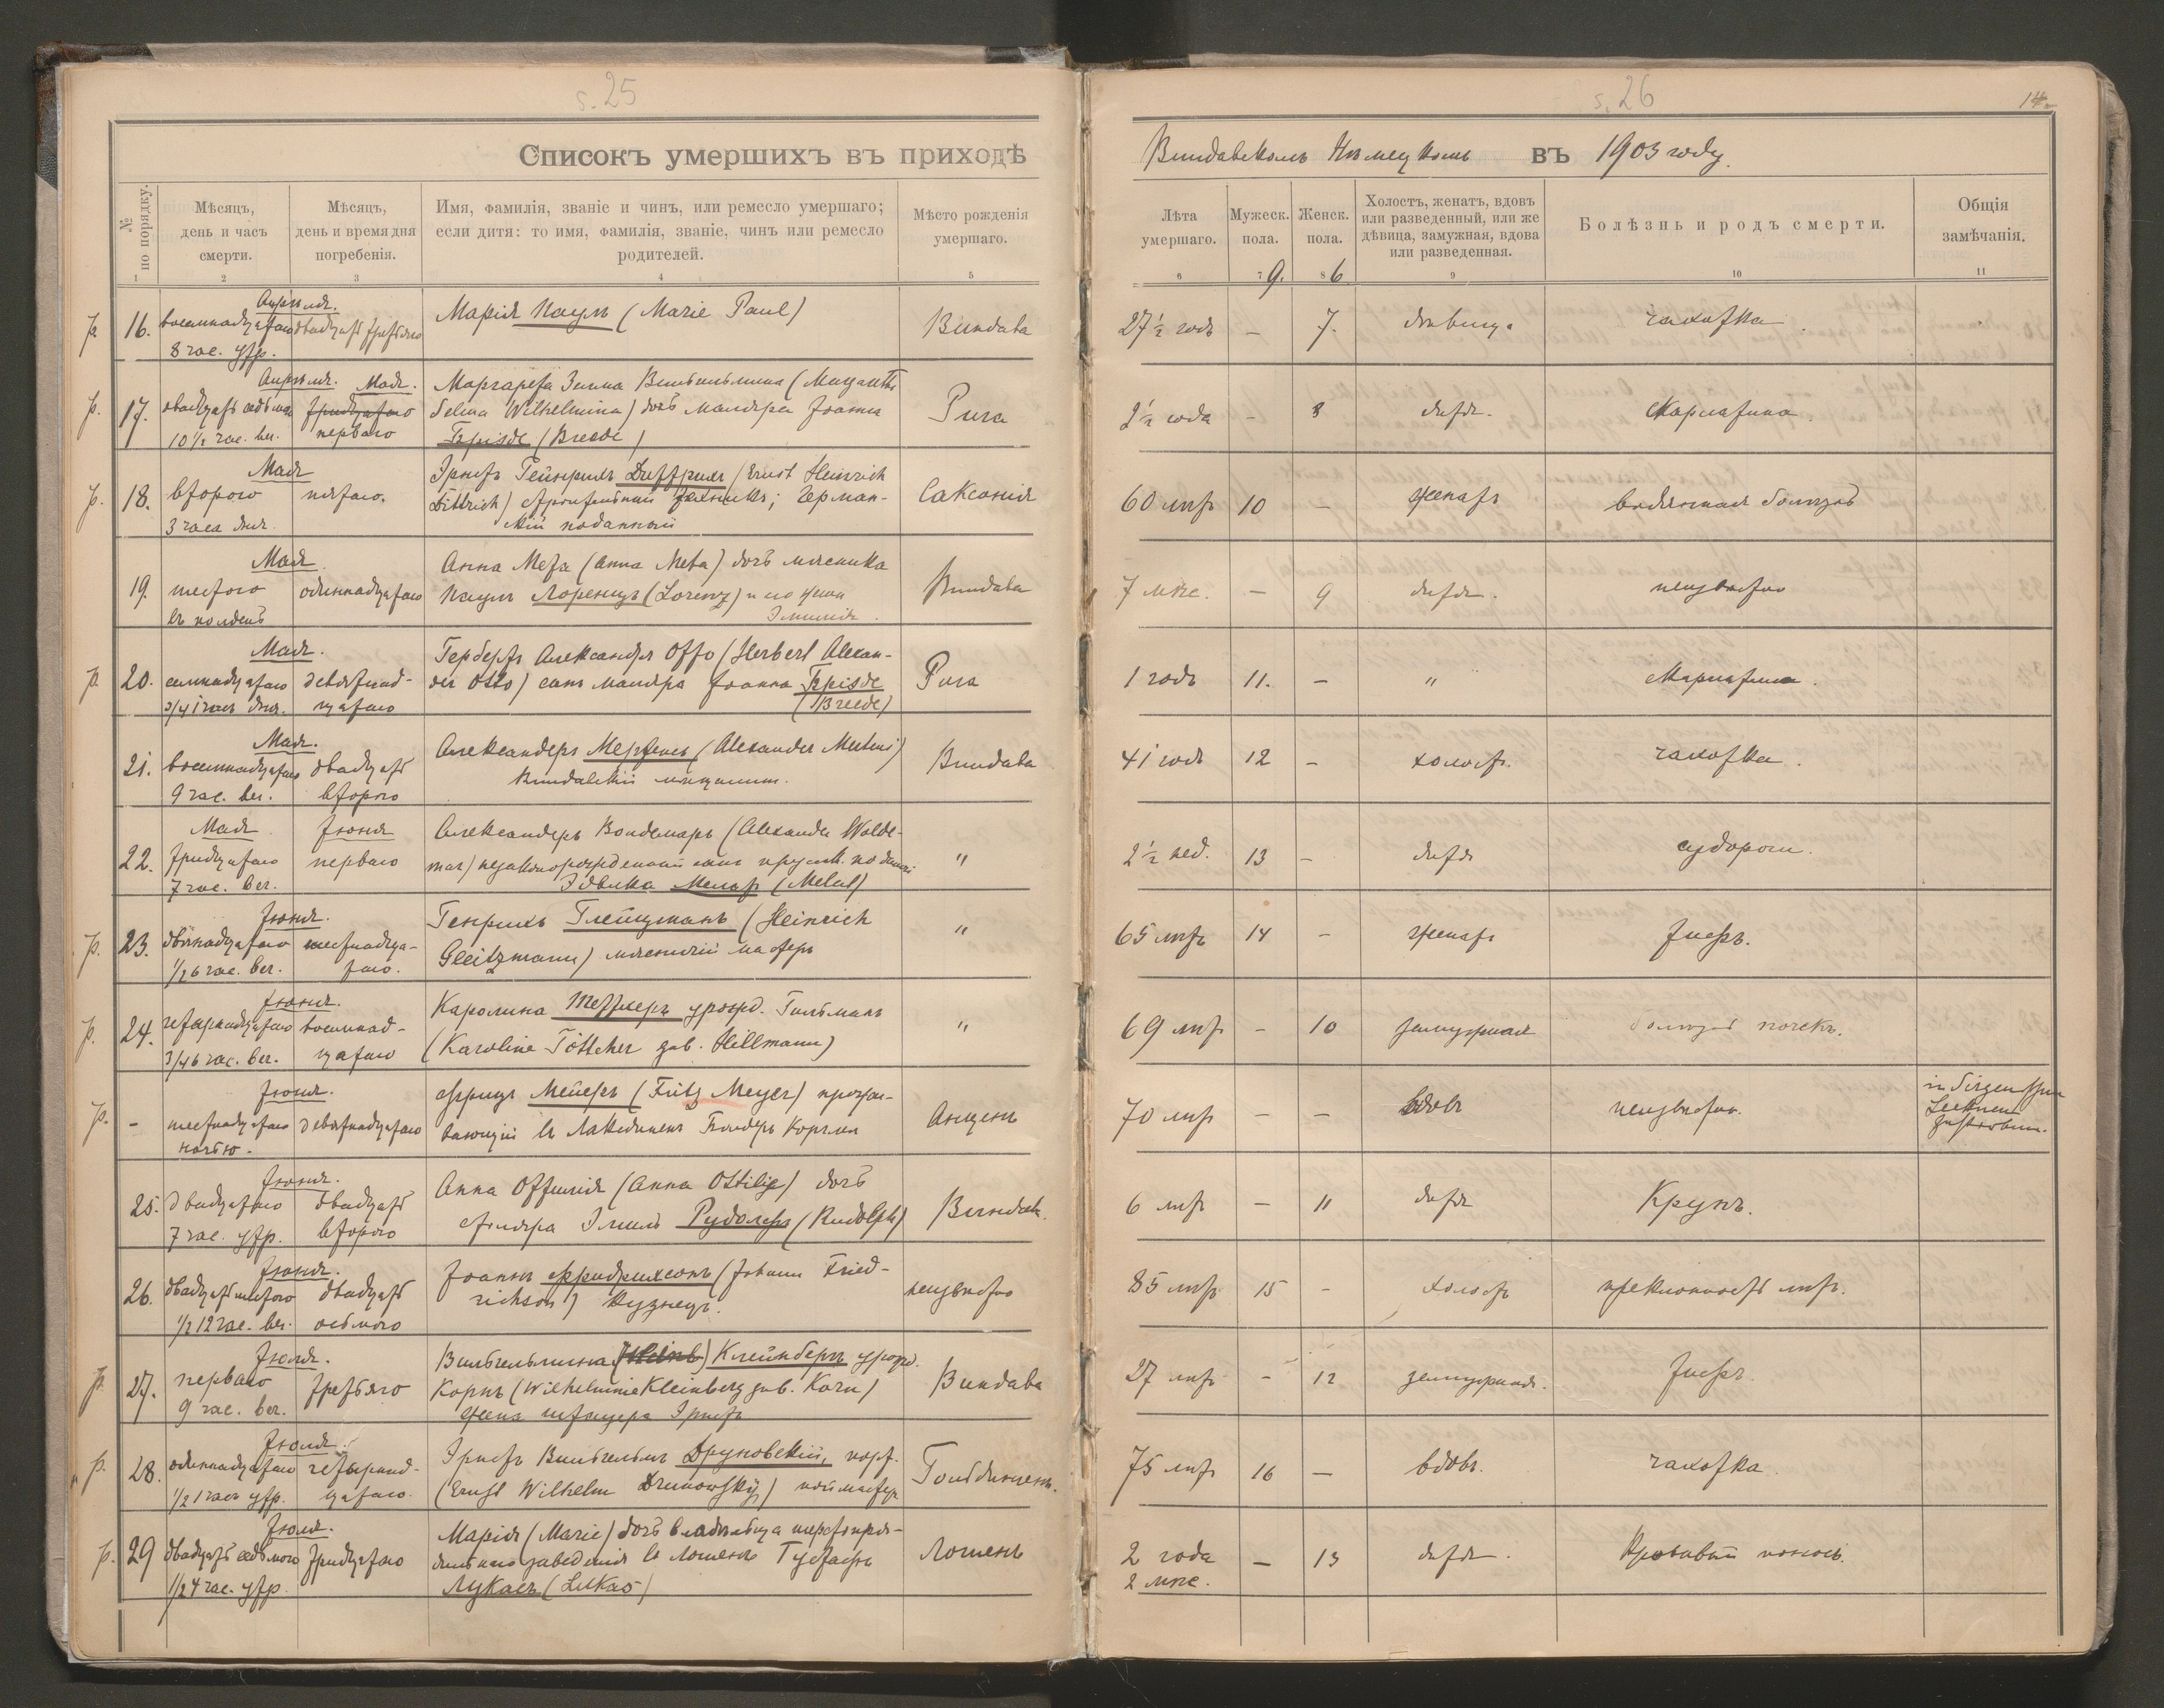 s. 25
Списокъ умершихъ въ приходѣ
№ по порядку.
Мѣсяцъ, день и часъ смерти.
Мѣсяцъ, день и время дня погребенія.
Имя, фамилія, званіе и чинъ, или ремесло умершаго;
если дитя: то имя, фамилія, званіе, чинъ или ремесло
родителей.
Мѣсто рожденія умершаго.
1 2 3 4 5
р. 16. Апрѣля.
восемнадцатаго двадцать третьяго Марія Пауль (Marie Paul) Виндава
8 час. утр.
р. 17. Апрѣля. Мая. Маргарета Зелма Вильгельмина
двадцать седьмаго тридцатаго Selma Wilhelmina) дочь маляра Іоанна Рига
10 1/2 час. веч. перваго Брізде (Breede)
р. 18. Мая Эрнстъ Гейнрихъ Диттрихъ (Ernst Heinrich
втораго пятаго. Dittrich) строительный техникъ; Герман- Саксонія
3 часа дня. скій поданный
19. Мая Анна Мета (Anna Meta) дочь мясника
шестого одиннадцатаго Пауль Лоренцъ (Lorenz) и его жены Виндава
въ полдень Эмилія
р. 20. Мая. Гербертъ Александръ Отто (Herbert Alexan-
семнадцатаго девятнад- der Otto) сынъ маляра Іоанна Брізде Рига
3/4 1 часъ дня. цатаго (Breede)
21. Мая. Александеръ Мертенсъ (Alexander Mertens)
восемнадцатаго двадцать Виндавскій мѣщанинъ. Виндава
9 час. веч. втораго
22. Мая Іюня Александеръ Вольдемаръ (Alexander Wolde-
тридцатаго перваго mar) незаконорожденный сынъ прусск. поданной "
7 час. веч. (Melat)
р. 23. Іюня. Генрихъ Глейцманъ (Heinrich
двѣнадцатаго шестнадца- Gleitzmann) мясничій мастеръ "
1/2 6 час. веч. таго.
р. 24. Іюня. Каролина Теттхеръ урожд. Гильманъ
четырнадцатаго восемнад- (Karoline Töttcher geb. Hillmann) "
3/4 6 час. веч. цатаго
р. - Іюня. Фрицъ Мейеръ (Fritz Meyer) прожи-
шестнадцатаго девятнадцатаго вающій въ
ночью.
25. Іюня. Анна Оттилія (Anna Ottilie) дочь
двадцатаго двадцать столяра Эмиль Рудольфъ (Rudolph) Виндава.
7 час. утр. втораго
26. Іюня. Іоаннъ Фридрихсонъ (Johann Fried-
двадцать шестого двадцать richson) кузнецъ. неизвѣстно
1/2 12 час. веч. осьмого
р. 27. Іюля. Вильгельмина Клейнбергъ урожд.
перваго третьяго Корнъ (Wilhelmine Kleinberg geb. Korn) Виндава
9 час. веч. жена Эрнстъ
р. 28. Іюля. Эрнстъ Вильгельмъ Друновскій, порт.
одиннадцатаго четырнад- (Ernst Wilhelm Drunowsky)
1/2 1 часъ утр. цатаго.
р. 29 Іюля. Марія (Marie) дочь владѣльца шерстопря-
двадцать седьмого тридцатаго дильнаго заведенія въ Лошенъ Густавъ Лошенъ
1/2 4 час. утр. Лукасъ (Lukas)
s. 26
14.
Виндавскомъ Нѣмецкомъ въ 1903 году.
Лѣта умершаго.
Мужеск. пола.
Женск. пола.
Холостъ, женатъ, вдовъ
или разведенный, или же
дѣвица, замужная, вдова
или разведенная.
Болѣзнь и родъ смерти.
Общія замѣчанія.
6 7 9. 8 6. 9 10 11
27 1/2 годъ – 7. дѣвица чахотка
2 1/2 года – 8 дитя. скарлатина.
60 лѣтъ 10 – женатъ водяночная болѣзнь
7 мѣс. – 9 дитя. неизвѣстно
1 годъ 11. – " скарлатина.
41 годъ 12 – холостъ. чахотка.
2 1/2 нед. 13 – дитя судороги.
65 лѣтъ 14 – женатъ тифъ.
69 лѣтъ – 10 замужная болѣзнь почекъ.
70 лѣтъ – – вдовъ неизвѣстно.
6 лѣтъ – 11 дитя Крупъ.
85 лѣтъ 15 – холостъ преклонность лѣтъ.
27 лѣтъ – 12 замужная. тифъ.
75 лѣтъ 16 – вдовъ. чахотка.
2 года – 13 дитя. Кровавый поносъ.
2 мѣс.